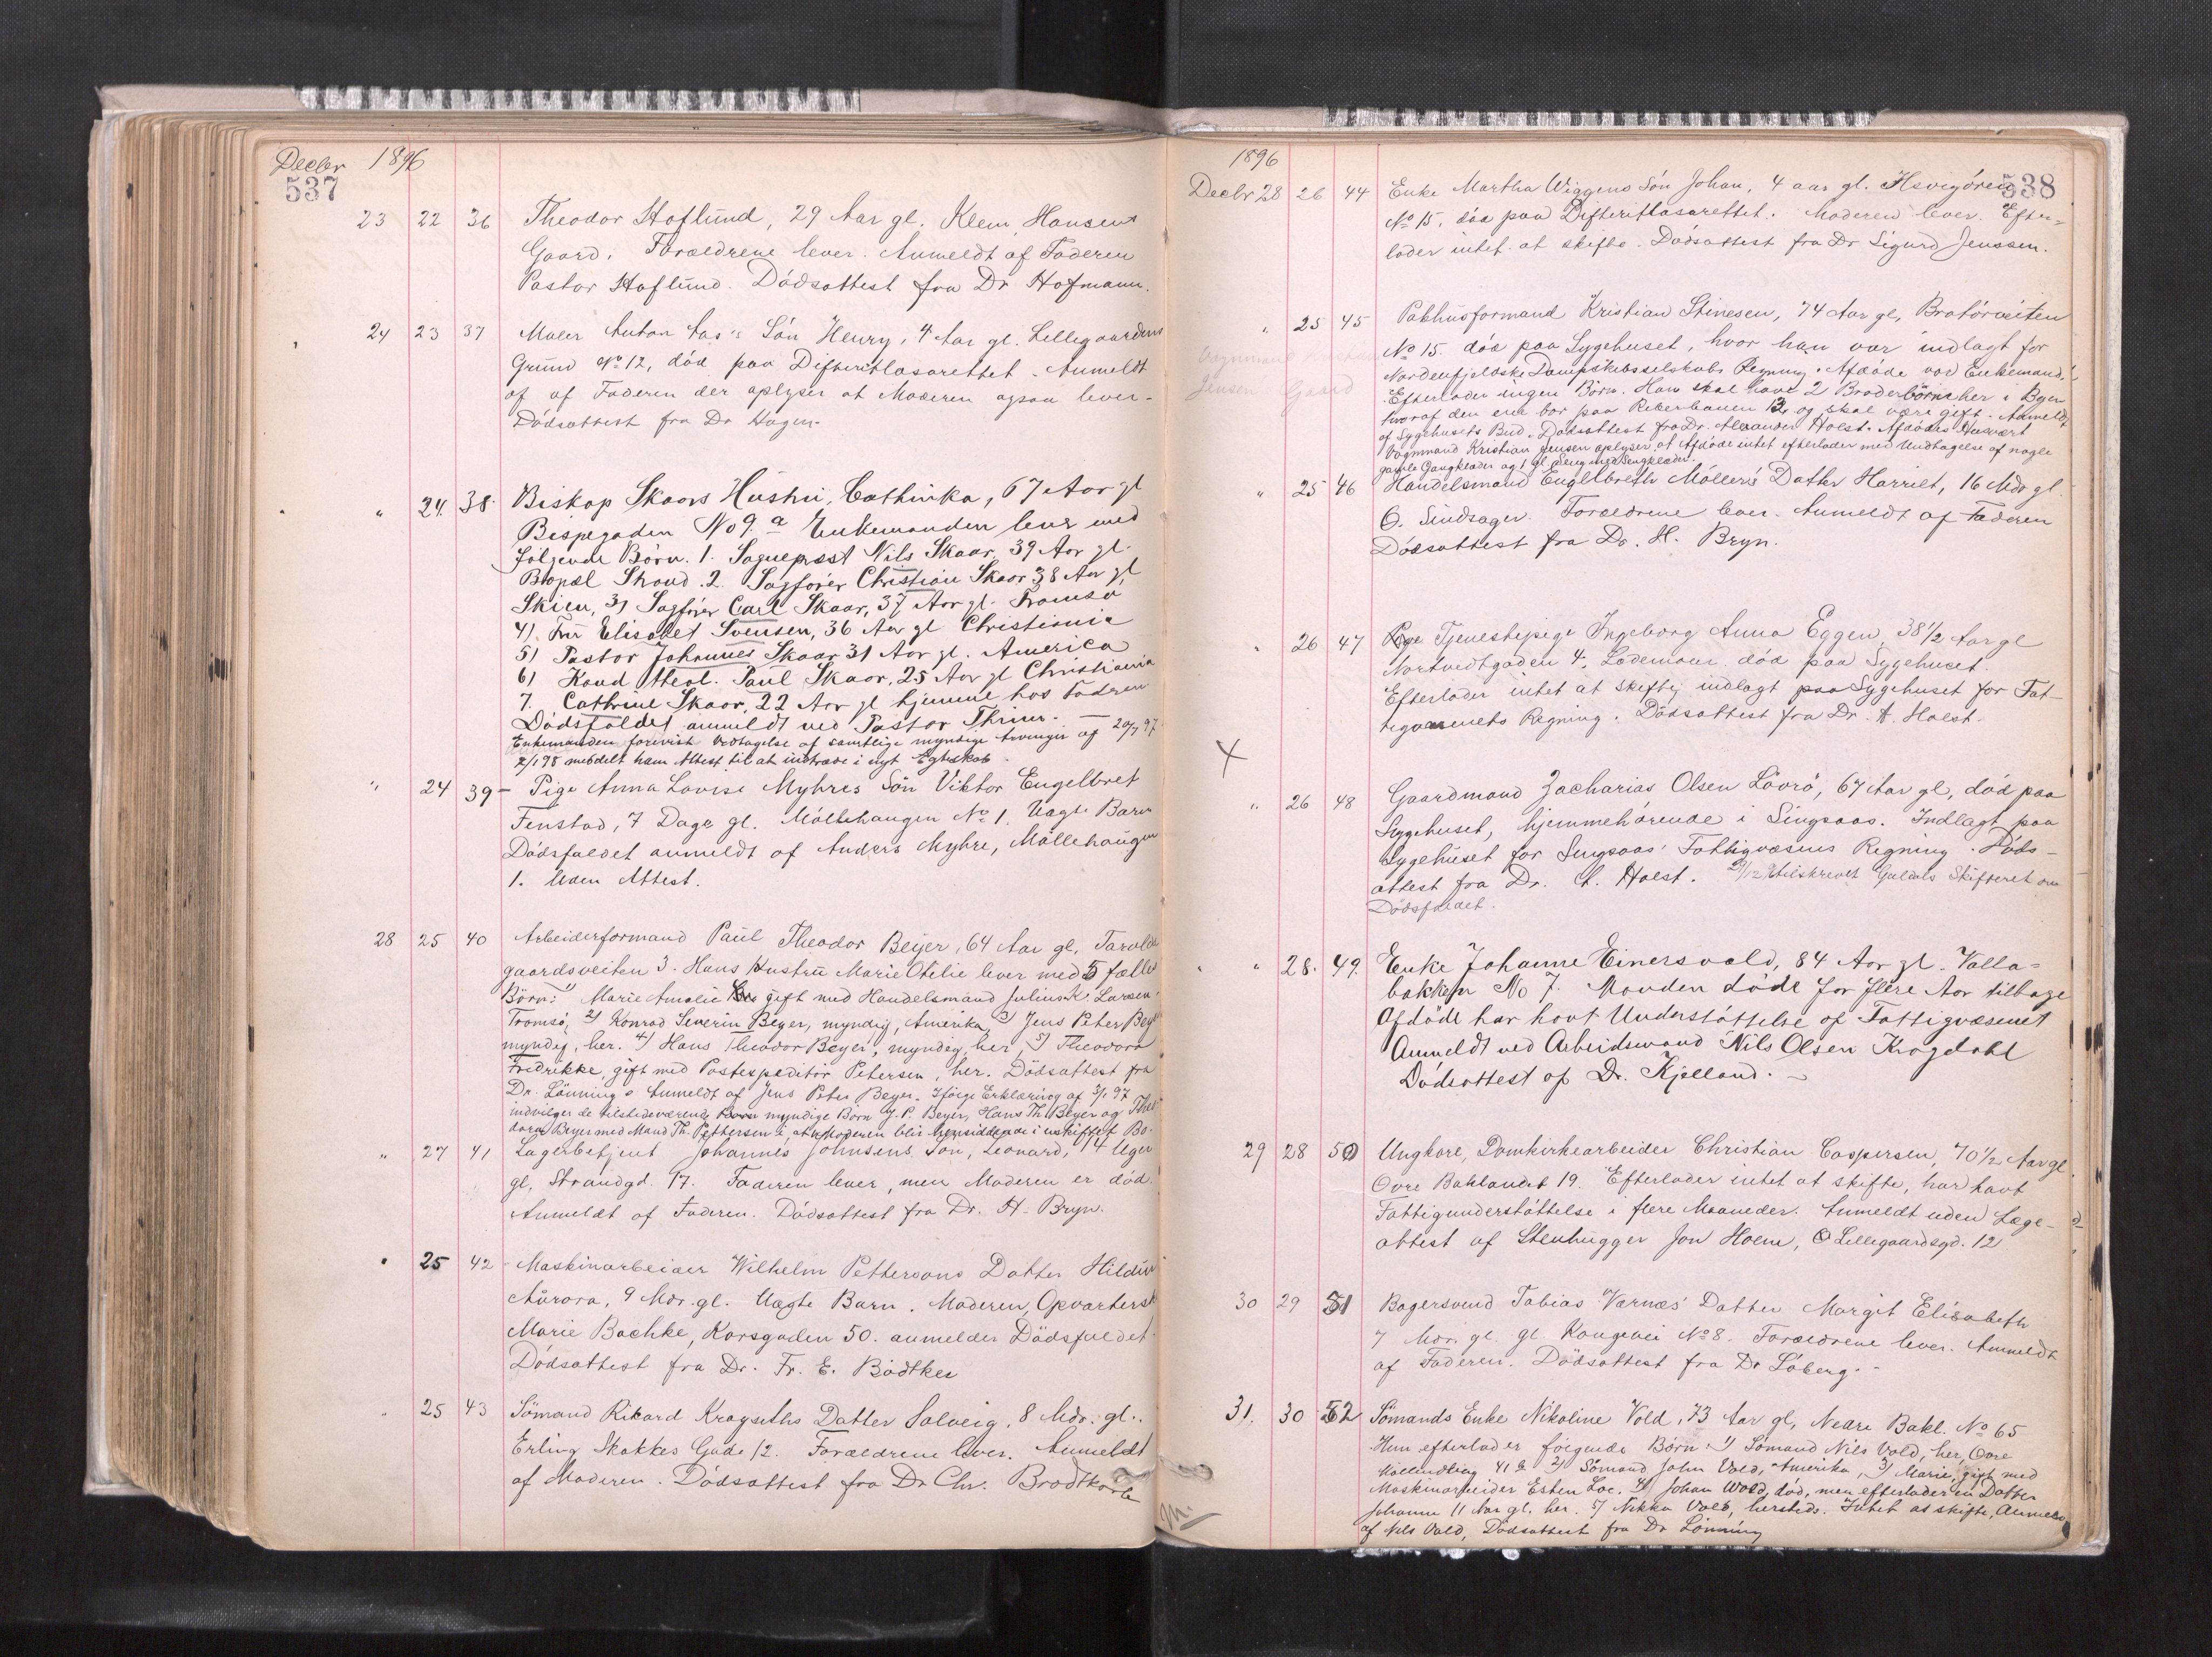 Decbr 1896
537
23 22 36 Theodor Hoflund, 29 Aar gl. Klem. Hansens
Gaard. Forældrene lever. Anmeldt af Faderen
Pastor Hoflund. Dødsattest fra Dr Hofmann.
24 23 37 Maler Anton Aas's Søn Henry, 4 Aar gl. Lillegaardens
Grund No 12, død paa Difteritlasarettet. Anmeldt
af af Faderen der oplyser at Moderen ogsaa lever.
Dødsattest fra Dr Hagen.
" 24. 38. Biskop Skaars Hustru, Cathinka, 67 Aar gl
Bispegaden No 9.a Enkemanden lever med
følgende Børn. 1. Sognepræst Nils Skaar, 39 Aar gl.
Bopæl Strand. 2. Sagfører Christian Skaar 38 Aar gl
Skien, 3) Sagfører Carl Skaar, 37 Aar gl. Tromsø
4). Fru Elisabet Svensen, 36 Aar gl Christiania
5) Pastor Johannes Skaar 31 Aar gl. America
6) Kand theol. Paul Skaar, 25 Aar gl Christiania
7. Cathrine Skaar, 22 Aar gl hjemme hos Faderen
Dødsfaldet anmeldt ved Pastor Thrine. —
Enkemanden forevist Vedtagelse af samtlige myndige Arvinger af 20/7 97.
2/1 98 meddelt ham Attest til at indtræde i nyt Egteskab
" 24 39 - Pige Anna Lovise Myhres Søn Viktor Engelbret
Fenstad, 7 Dage gl. Møllehaugen No 1. Uægte Barn
Dødsfaldet anmeldt af Anders Myhre, Møllehaugen
1. Uden Attest.
28 25 40 Arbeiderformand Paul Theodor Beyer, 64 Aar gl, Tarolds
gaardsveiten 3. Hans Hustru Marie Otilie lever med 5 fælles
Børn: 1) Marie Amalie gift med Handelsmand Julius K. Larsen
Tromsø, 2) Konrad Severin Beyer, myndig, Amerika, 3) Jens Peter Beyer
myndig, her. 4) Hans Theodor Beyer, myndig, her, 5) Theodora
Fredrikke, gift med Postexpeditør Petersen, her. Dødsattest fra
Dr. Lønning. Anmeldt af Jens Peter Beyer. Ifølge Erklæring af 3/1 97
indvilger de tilstedeværende myndige Børn J. P. Beyer, Hans Th. Beyer og Theo
dora Beyer med Mand Th. Pettersen i, at Moderen blir hensiddende i uskiftet Bo.
" 27 41 Lagerbetjent Johannes Johnsens Søn, Leonard, 14 Uger
gl, Strandgd. 17. Faderen lever, men Moderen er død.
Anmeldt af Faderen. Dødsattest fra Dr. H. Bryn.
" 25 42 - Maskinarbeider Wilhelm Pettersons Datter Hildur
Aurora, 9 Mdr. gl. Uægte Barn. Moderen, Opvarterske
Marie Bachke, Korsgaden 50. anmelder Dødsfaldet.
Dødsattest fra Dr. Fr. E. Bødtker
" 25 43 Sømand Rikard Kragseths Datter Solveig, 8 Mdr. gl.
Erling Skakkes Gade 12. Forældrene lever. Anmeldt
af Moderen. Dødsattest fra Dr Chr. Brodtkorb
1896
538
Decbr 28 26 44 Enke Martha Wiggens Søn Johan, 4 aar gl. Ilsvigøren
No 15, død paa Difteritlasarettet. Moderen lever. Efter-
lader intet at skifte. Dødsattest fra Dr Sigurd Jenssen.
" 25 45 Pakhusformand Kristian Stinesen, 74 Aar gl, Bratørveiten
No 15. død paa Sygehuset, hvor han var indlagt for
Nordenfjeldske Dampskibsselskabs Regning. Afdøde var Enkemand.
Efterlader ingen Børn. Han skal have 2 Broderbørn her i Byen
hvoraf den ene bor paa Reberbanen 13, og skal være gift. Anmeldt
af Sygehusets Bud. Dødsattest fra Dr. Alexander Holst. Afdødes Husvært
Vognmand Kristian Jensen oplyser, at Afdøde intet efterlader med Undtagelse af nogle
gamle Gangklæder og 1 gl. Seng med Sengklæder.
Vognmand Kristian
Jensen Gaard
" 25 46 Handelsmand Engelbreth Møllers Datter Harriet, 16 Mdr gl.
O. Sindsager. Forældrene lever. Anmeldt af Faderen
Dødsattest fra Dr. H. Bryn.
" 26 47 Tjenestepige Ingeborg Anna Eggen, 38 1/2 Aar gl
Nortvedtgaden 4, Lademoen. død paa Sygehuset.
Efterlader intet at skifte, indlagt paa Sygehuset for Fat-
tigvæsenets Regning. Dødsattest fra Dr. A. Holst.
" 26 48 Gaardmand Zacharias Olsen Løvrø, 67 Aar gl, død paa
Sygehuset, hjemmehørende i Singsaas. Indlagt paa
Sygehuset for Singsaas' Fattigvæsens Regning. Døds-
attest fra Dr. A. Holst. 29/12 tilskrevet Guldals Skifteret om
Dødsfaldet.
" 28. 49. Enke Johanne Einersvold, 84 Aar gl. Valla=
bakken No 7. Manden døde for flere Aar tilbage
Afdøde har havt Understøttelse af Fattigvæsenet
Anmeldt ved Arbeidsmand Nils Olsen Krogdahl
Dødsattest af Dr. Kjelland. —
29 28 50 Ungkare, Domkirkearbeider Christian Caspersen, 70 1/2 Aar gl.
Øvre Baklandet 19. Efterlader intet at skifte, har havt
Fattigunderstøttelse i flere Maaneder. Anmeldt uden Læge-
attest af Stenhugger Jon Hoem, Ø Lillegaardsgd. 12
30 29 51 Bagersvend Tobias Værnæs' Datter Margit Elisabeth
7 Mdr. gl. gl. Kongevei No 8. Forældrene lever. Anmeldt
af Faderen. Dødsattest fra Dr Løberg. -
31. 30 52 Sømands Enke Nikoline Vold, 73 Aar gl, Nedre Bakl. No 65
Hun efterlader følgende Børn: 1) Sømand Nils Vold, her, Øvre
Møllenberg 41 b 2) Sømand John Vold, Amerika, 3) Marie, gift med
Maskinarbeider Esten Loe. 4) Johan Wold, død, men efterlader en Datter
Johanne 11 Aar gl. her. 5) Nikka Vold, hersteds. Intet at skifte, Anmeldt
af Nils Vold, Dødsattest fra Dr Lønning